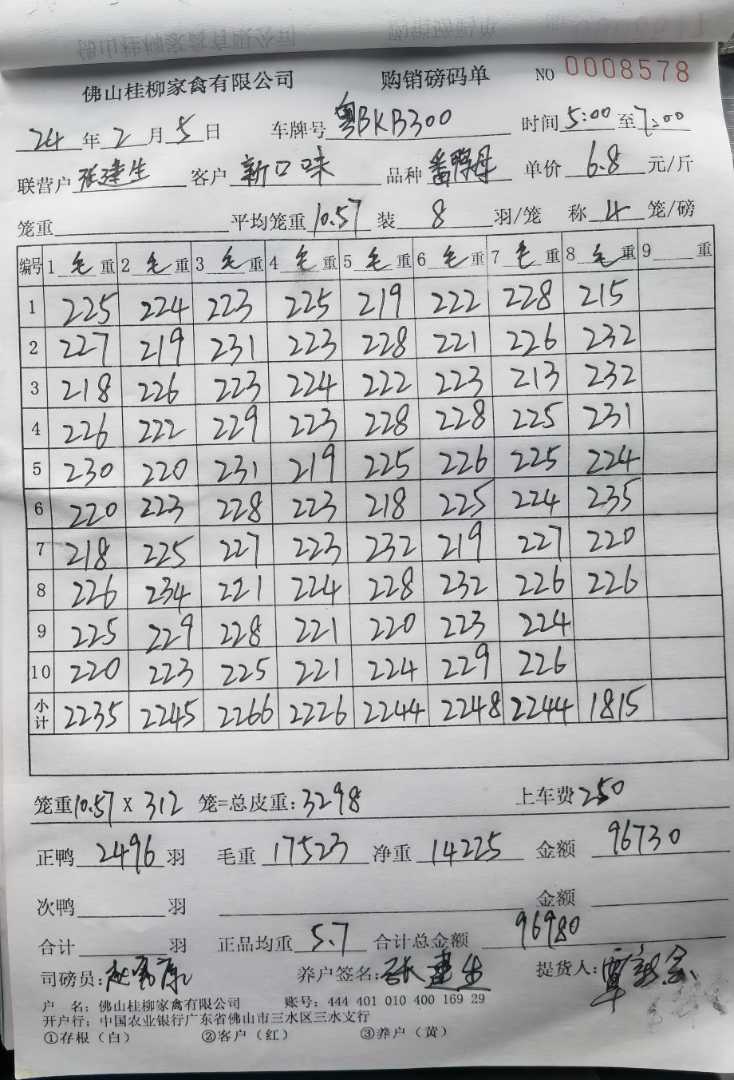 佛山桂柳家禽有限公司 购销磅码单 NO 0008578
24 年 2 月 5 日 车牌号 粤BKB300 时间 5:00 至 7:00
联营户 张建生 客户 新口味 品种 番鸭母 单价 6.8 元/斤
笼重 平均笼重 10.57 装 8 羽/笼 称 4 笼/磅
编号 1 毛 重 2 毛 重 3 毛 重 4 毛 重 5 毛 重 6 毛 重 7 毛 重 8 毛 重 9 重
1 225 224 223 225 219 222 228 215
2 227 219 231 223 228 221 226 232
3 218 226 223 224 222 223 213 232
4 226 222 229 223 228 228 225 231
5 230 220 231 219 225 226 225 224
6 220 223 228 223 218 225 224 235
7 218 225 227 223 232 219 227 220
8 226 234 221 224 228 232 226 226
9 225 229 228 221 220 223 224
10 220 223 225 221 224 229 226
小计 2235 2245 2266 2226 2244 2248 2244 1815
笼重 10.57 X 312 笼=总皮重: 3298 上车费 250
正鸭 2496 羽 毛重 17523 净重 14225 金额 96730
次鸭 羽 金额
合计 羽 正品均重 5.7 合计总金额 96980
司磅员: 养户签名: 张建生 提货人:
户 名: 佛山桂柳家禽有限公司 账号: 444 401 010 400 169 29
开户行: 中国农业银行广东省佛山市三水区三水支行
①存根(白) ②客户(红) ③养户(黄)